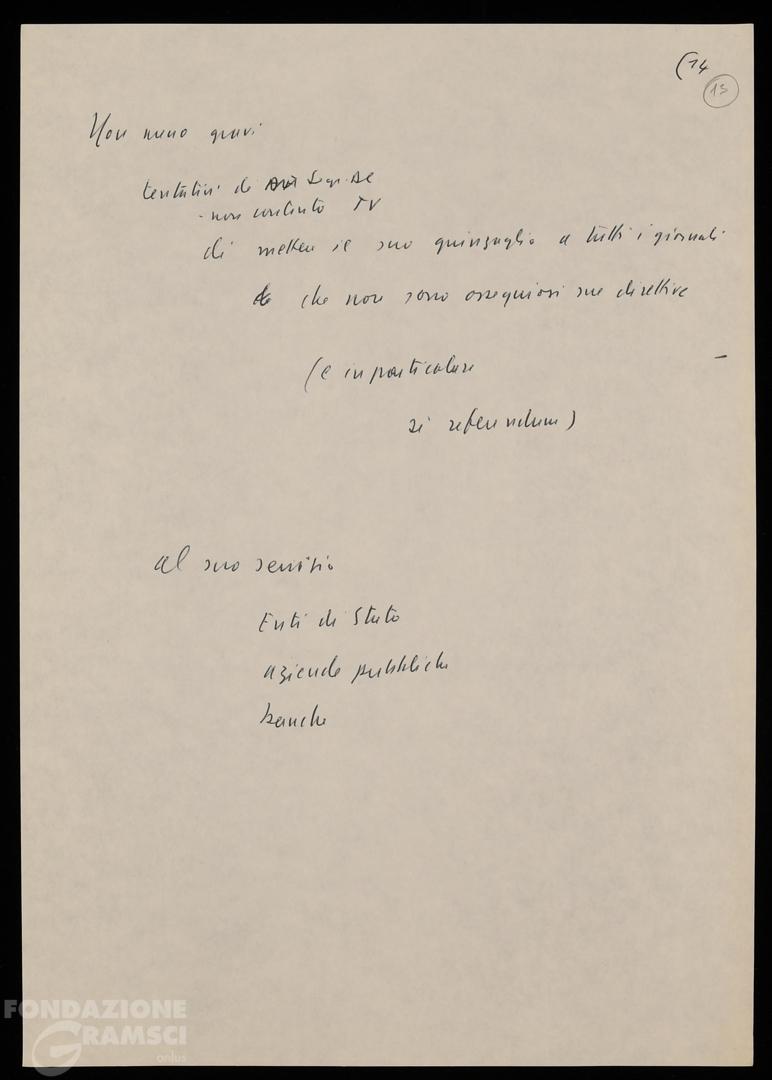 (14
13
Non meno gravi
tentativi di Segr. De
- non contento TV
di mettere il suo guinzaglio a tutti i giornali
che non sono ossequiosi sue direttive
(e in particolare
si referendum)
al suo servizio
Enti di Stato
aziende pubbliche
banche
FONDAZIONE
GRAMSCI
onlus